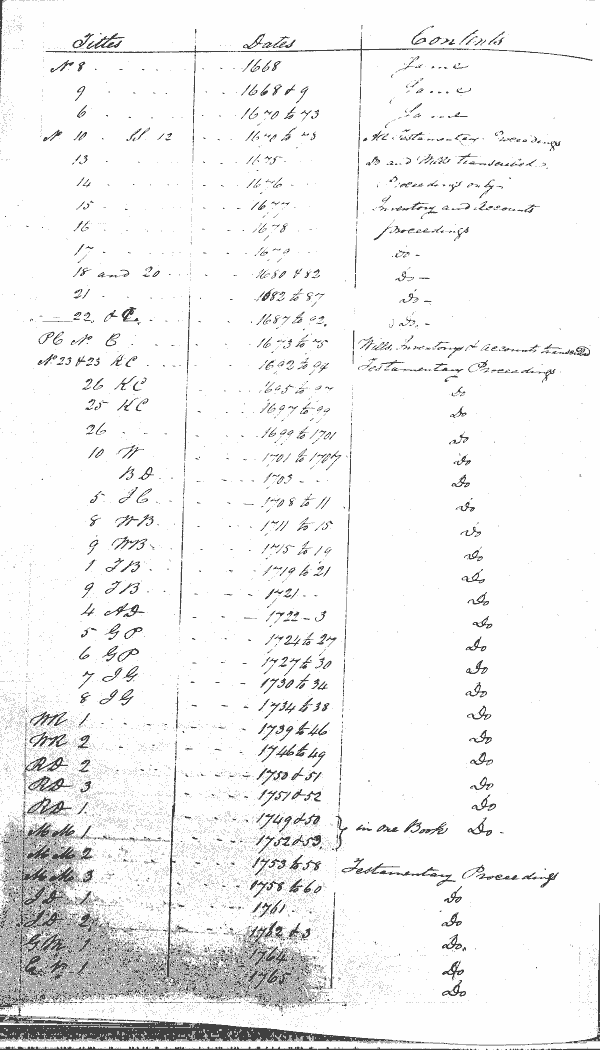 Titles Dates Contents
No 8 1668 Same
9 1668 & 9 Same
6 1670 to 73 Same
No 10 12 1670 to 73 All Testamentary Proceedings
13 1675 Do and Wills transcribed
14 1676 Proceedings only
15 1677 Inventory and Accounts
16 1678 Proceedings
17 1679 Do -
18 and 20 1680 & 82 Do -
21 1682 to 87 Do -
22 & 1687 to 92 Do -
PC No C 1673 to 75 Wills Inventorys & accounts
No 23 & 23 KC 1692 to 94 Testamentary Proceedings
26 KC 1695 to 97 Do
25 KC 1697 to 99 Do
26 1699 to 1701 Do
10 W 1701 to 1707 Do
BD 1703 Do
5 JC 1708 to 11 Do
8 WB 1711 to 15 Do
9 WB 1715 to 19 Do
1 TB 1719 to 21 Do
9 TB 1721 Do
4 AD 1722-3 Do
5 GP 1724 to 27 Do
6 GP 1727 to 30 Do
7 JG 1730 to 34 Do
8 JG 1734 to 38 Do
WR 1 1739 to 46 Do
WR 2 1746 to 49 Do
RD 2 1750 & 51 Do
RD 3 1751 & 52 Do
RD 1 1749 & 50
MM 1 1752 & 53 } in one Book Do -
MM 2 1753 to 58 Testamentary Proceedings
MM 3 1758 to 60 Do
JD 1 1761 Do
JD 2 1762 & 3 Do.
GM 1 1764 Do
1 1765 Do